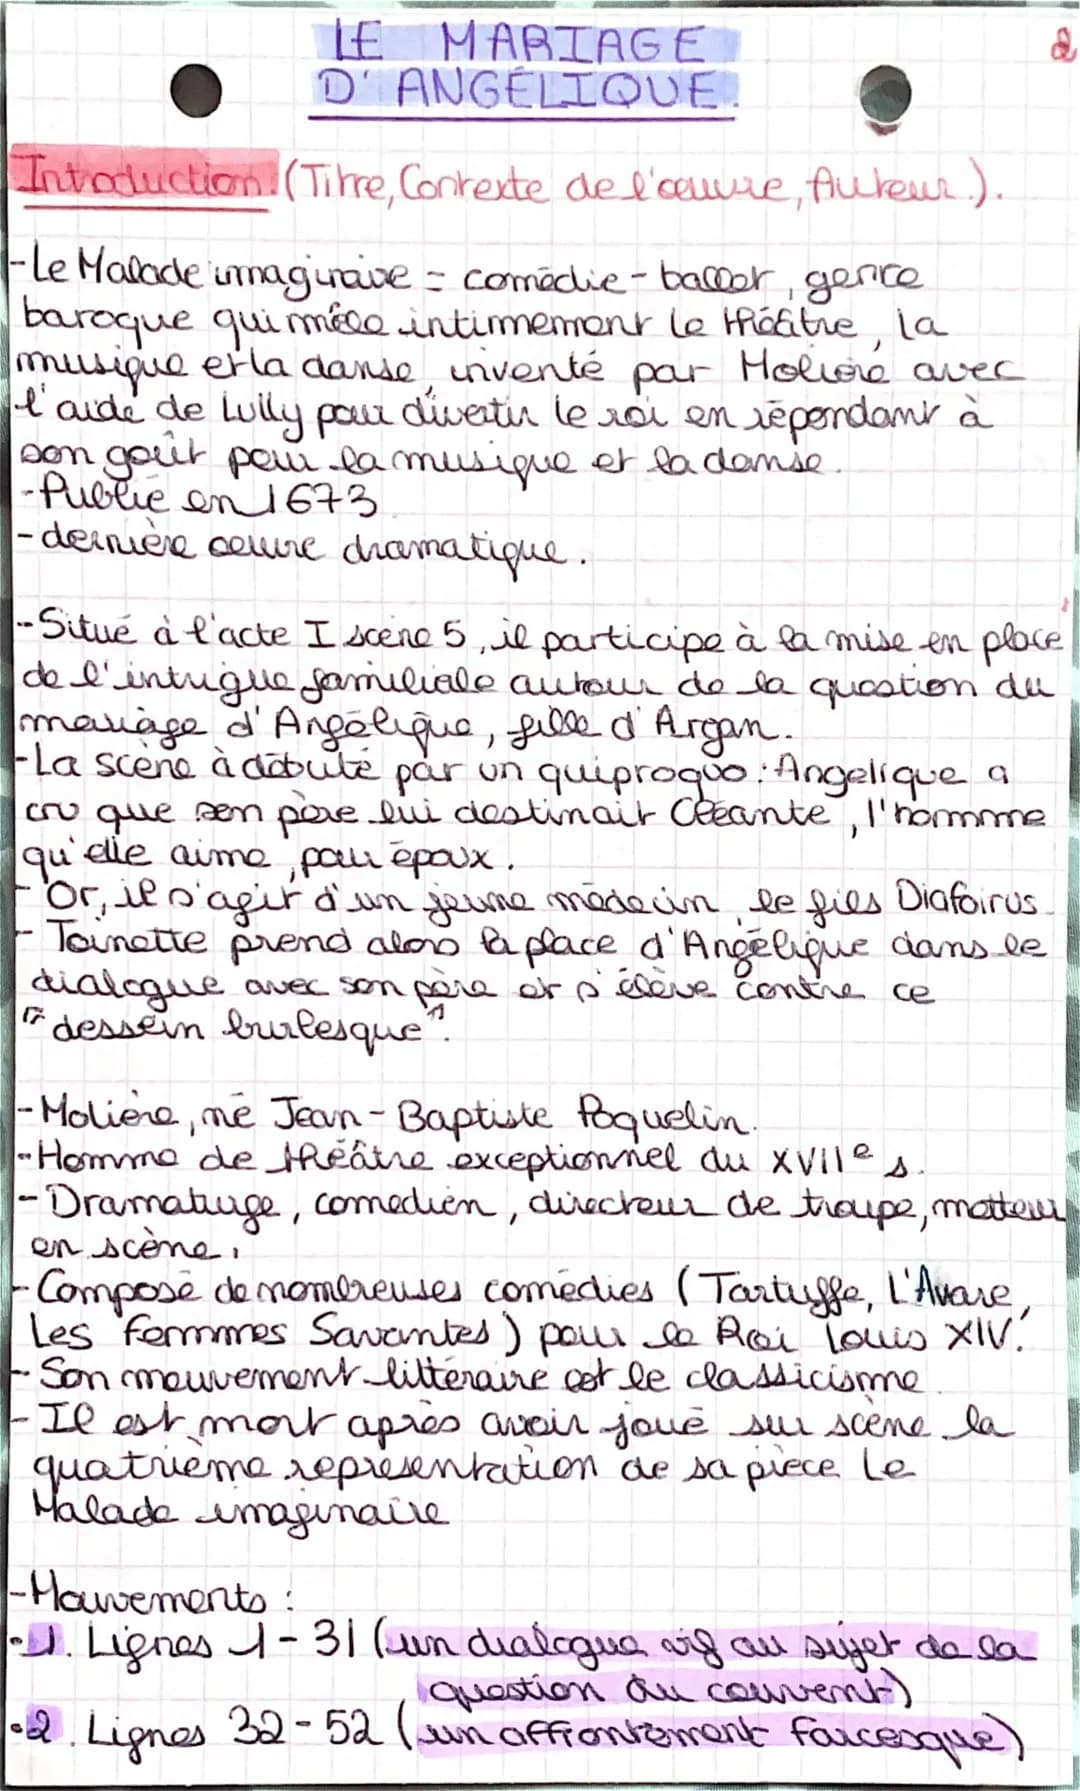 LE MARIAGE
D'ANGÉLIQUE.
2
Introduction. (Titre, Contexte de l'œuvre, Auteur.).
-Le Malade imaginaire = comédie-ballet, genre
baroque qui mêle intimement le théâtre, la
musique et la danse, inventé par Molière avec
l'aide de Lully pour divertir le roi en répondant à
son goût pour la musique et la danse.
-Publié en 1673
-dernière œuvre dramatique.
-Situé à l'acte I scène 5, il participe à la mise en place
de l'intrigue familiale autour de la question du
mariage d'Angélique, fille d'Argan.
-La scène à débuté par un quiproquo : Angelique a
cru que son père lui destinait Cléante, l'homme
qu'elle aime, pour époux.
- Or, il s'agit d'un jeune médecin, le fils Diafoirus.
- Toinette prend alors la place d'Angélique dans le
dialogue avec son père et s'élève contre ce
"dessein burlesque".
-Molière, né Jean-Baptiste Poquelin.
-Homme de théâtre exceptionnel du XVIIe s.
-Dramaturge, comedien, directeur de troupe, metteur
en scène.
-Composé de nombreuses comédies (Tartuffe, L'Avare,
Les Femmes Savantes) pour le Roi Louis XIV.
-Son mouvement littéraire est le classicisme.
-Il est mort après avoir joué sur scène la
quatrième représentation de sa pièce Le
Malade imaginaire
-Mouvements :
•1. Lignes 1-31 (un dialogue vif au sujet de la
question du couvent)
•2. Lignes 32-52 (un affrontement farcesque)